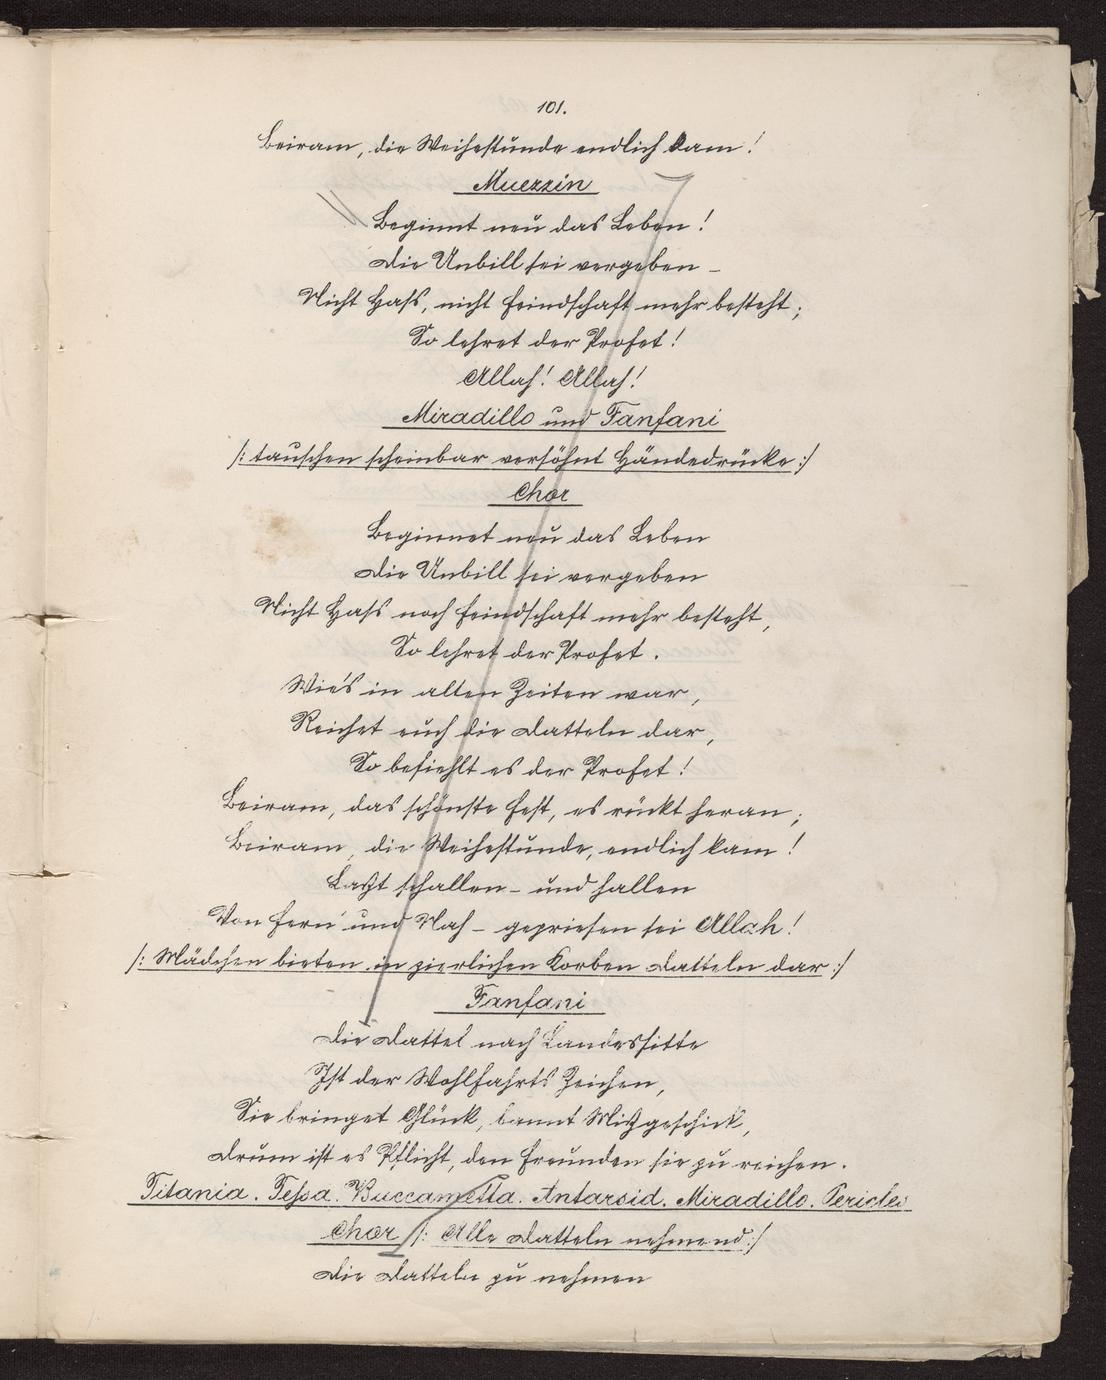 101.
Beiram, die Weihestunde endlich kam!
Muezzin
Beginnt neu das Leben!
Die Unbill sei vergeben –
Nicht Hass, nicht Feindschaft mehr besteht;
So lehret der Profet!
Allah! Allah!
Miradillo und Fanfani
/: tauschen scheinbar versöhnt Händedrücke :/
Chor
Beginnet neu das Leben
Die Unbill sei vergeben
Nicht Hass noch Feindschaft mehr besteht,
So lehret der Profet.
Wie's in alten Zeiten war,
Reichet euch die Datteln dar,
So befiehlt es der Profet!
Beiram, das schönste Fest, es rückt heran;
Beiram, die Weihestunde, endlich kam!
Laßt schallen – und hallen
Von Fern' und Nah – gepriesen sei Allah!
/: Mädchen bieten in zierlichen Korben Datteln dar :/
Fanfani
Die Dattel nach Landessitte
Ist der Wohlfahrts Zeichen,
Sie bringet Glück, bannt Mißgeschick,
Drum ist es Pflicht, den Freunden sie zu reichen.
Titania. Tessa. Buccametta. Antarsid. Miradillo. Pericles
Chor /: Alle Datteln nehmend :/
Die Datteln zu nehmen